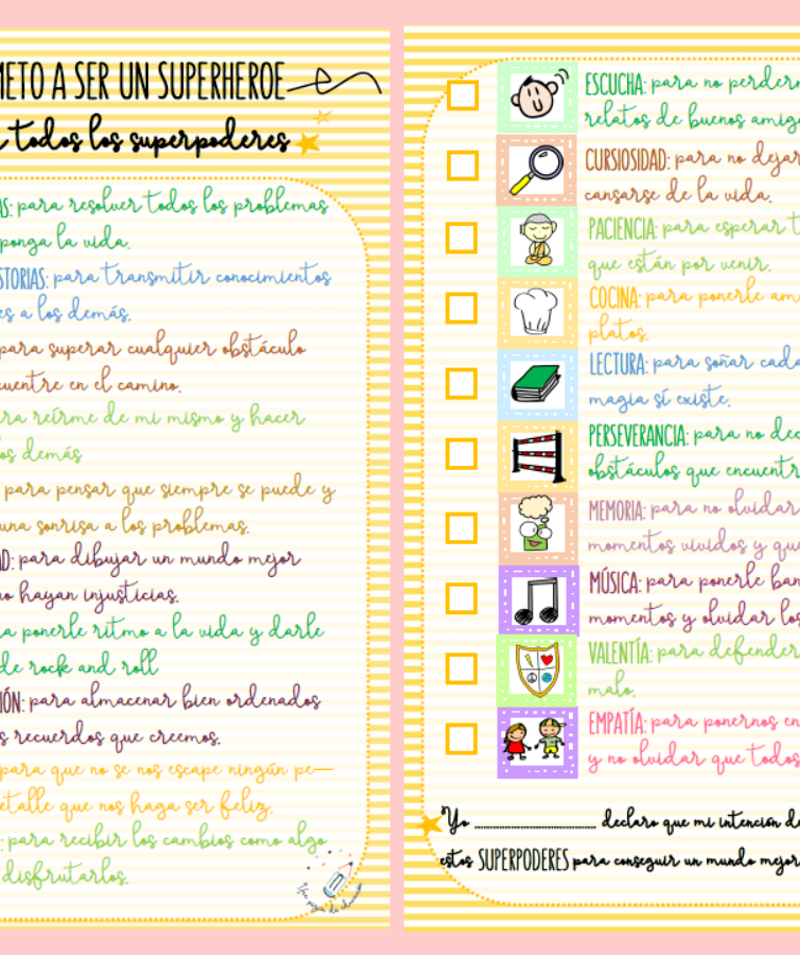 METO A SER UN SUPERHEROE
todos los superpoderes
AS: para resolver todos los problemas
ponga la vida.
STORIAS: para transmitir conocimientos
es a los demás.
para superar cualquier obstáculo
cuentre en el camino.
ra reírme de mi mismo y hacer
os demás
para pensar que siempre se puede y
una sonrisa a los problemas.
AD: para dibujar un mundo mejor
no hayan injusticias.
a ponerle ritmo a la vida y darle
de rock and roll
IÓN: para almacenar bien ordenados
s recuerdos que creemos.
para que no se nos escape ningún pe—
etalle que nos haga ser feliz.
: para recibir los cambios como algo
disfrutarlos.
ESCUCHA: para no perderm
relatos de buenos amig
CURSIOSIDAD: para no dejar
cansarse de la vida.
PACIENCIA: para esperar t
que están por venir.
COCINA: para ponerle am
platos.
LECTURA: para soñar cada
magia sí existe.
PERSEVERANCIA: para no dec
obstáculos que encuentr
MEMORIA: para no olvidar
momentos vividos y que
MÚSICA: para ponerle ban
momentos y olvidar los
VALENTÍA: para defender
malo.
EMPATÍA: para ponernos en
y no olvidar que todos
Yo ........................ declaro que mi intención de
estos SUPERPODERES para conseguir un mundo mejor